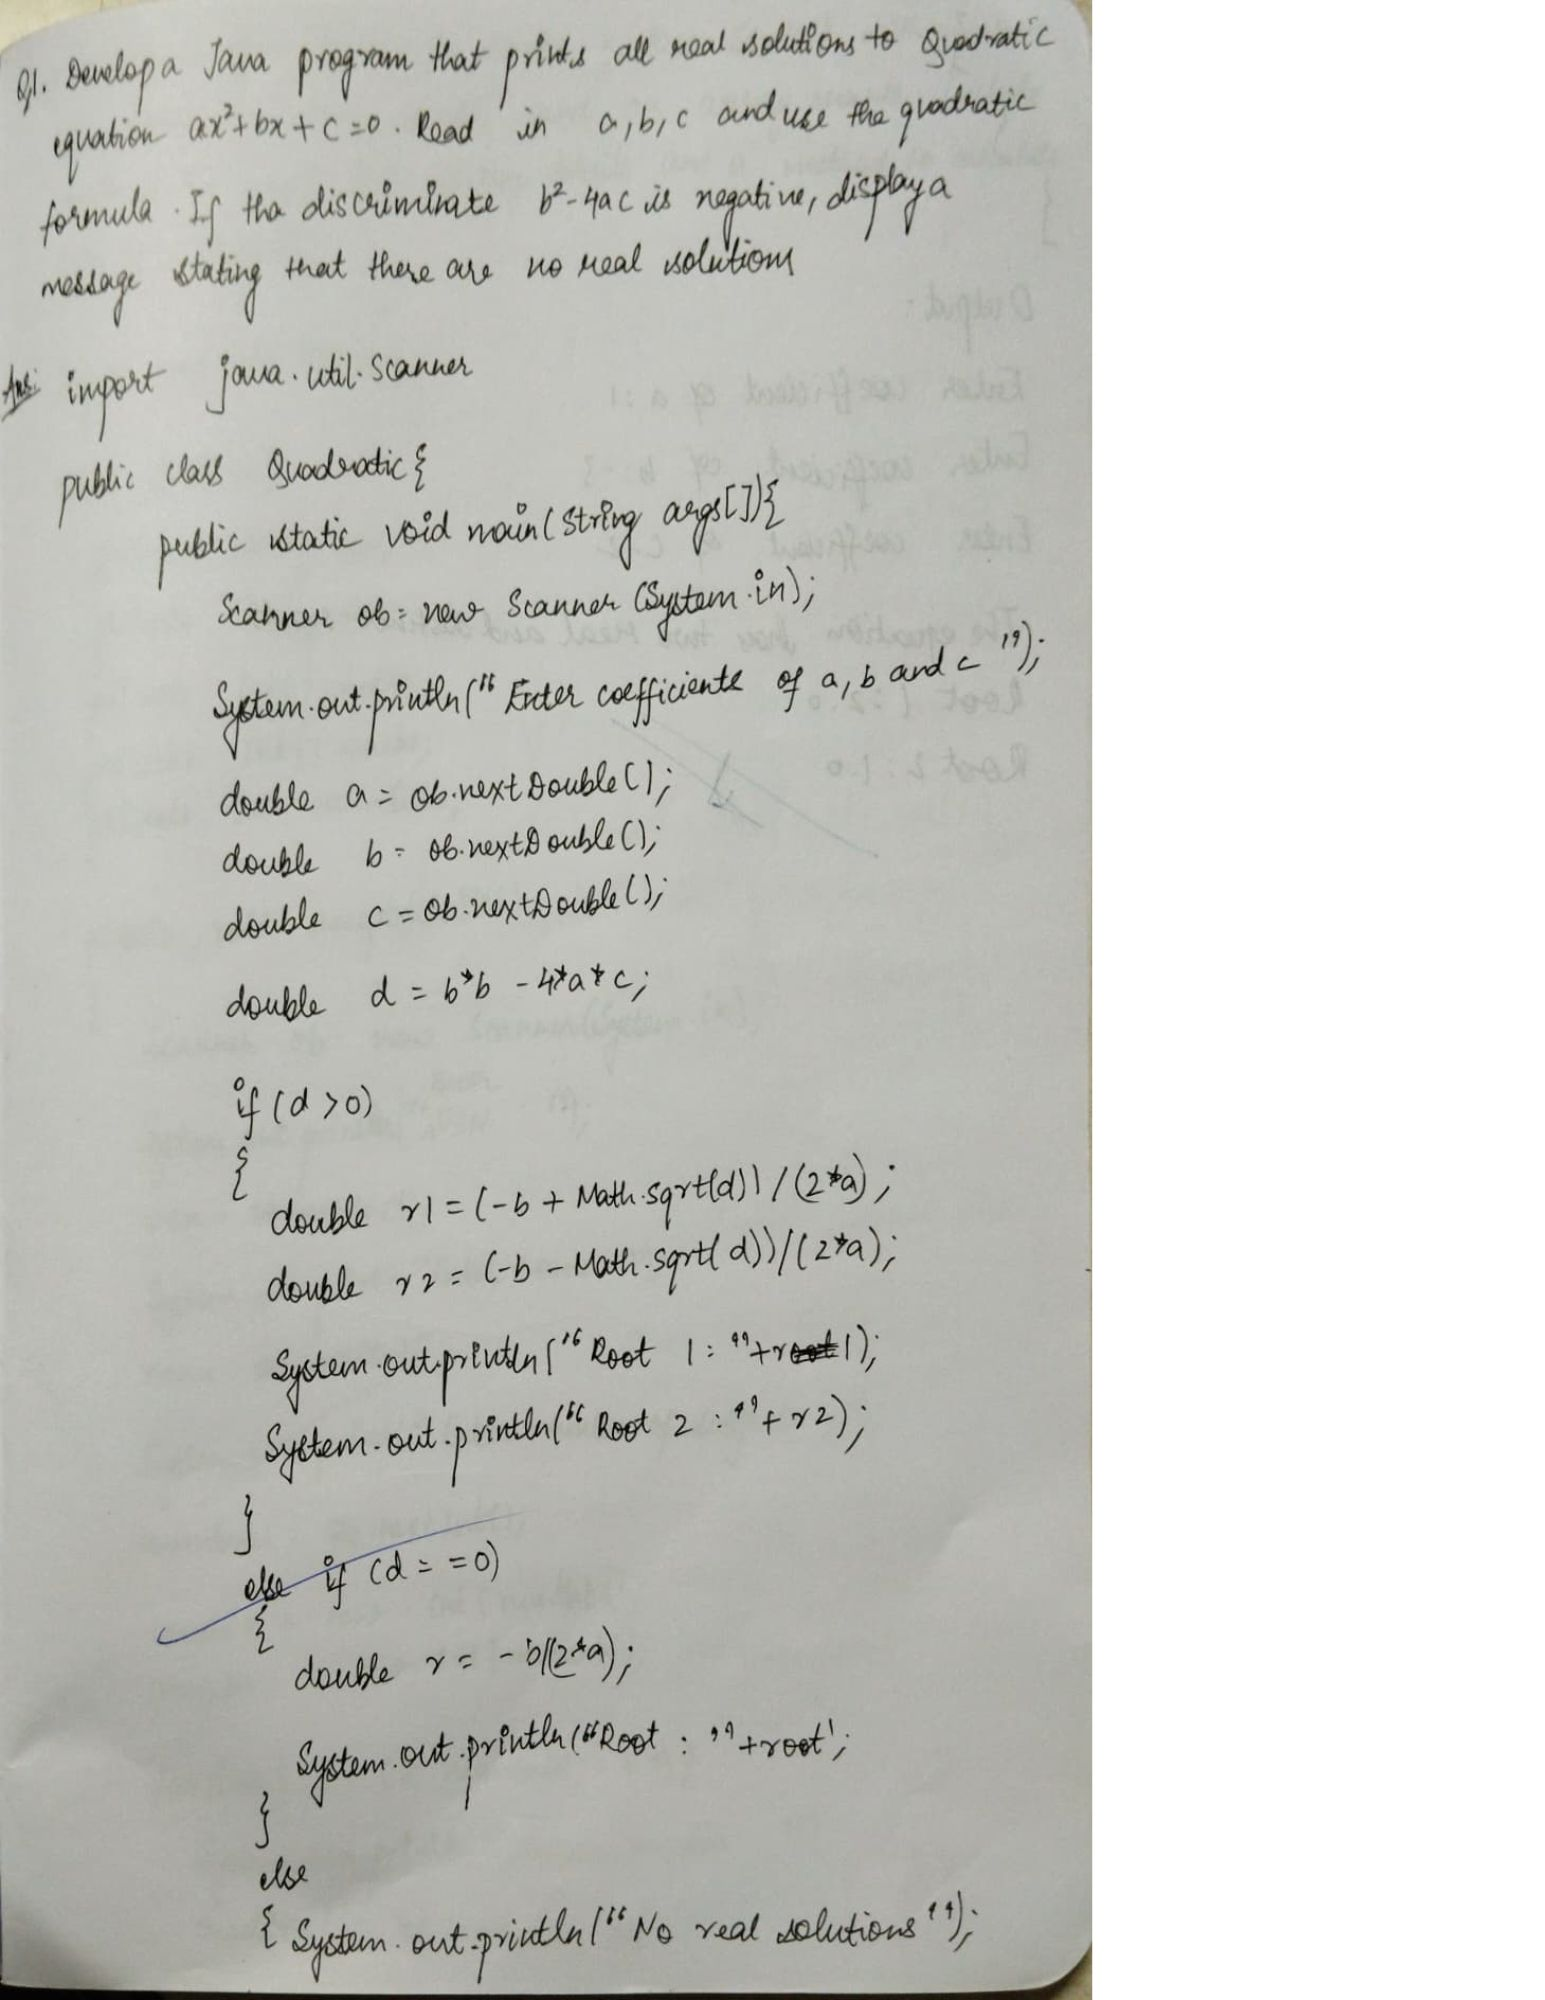 Q1. Develop a Java program that prints all real solutions to Quadratic
equation ax²+bx+c=0. Read in a,b,c and use the quadratic
formula. If the discriminate b²-4ac is negative, display a
message stating that there are no real solutions
Ans: import java.util.Scanner
public class Quadratic{
public static void main(String args[]){
Scanner ob= new Scanner (System.in);
System.out.println(“Enter coefficients of a, b and c”);
double a = ob.nextDouble();
double b = ob.nextDouble();
double c = ob.nextDouble();
double d = b*b - 4*a*c;
if (d >0)
{
double r1 = (-b + Math.sqrt(d))/(2*a);
double r2 = (-b - Math.sqrt(d))/(2*a);
System.out.println(“Root 1: ”+r1);
System.out.println(“Root 2 :”+r2);
}
else if (d==0)
{
double r = -b/(2*a);
System.out.println(“Root : ”+root';
}
else
{ System.out.println(“No real solutions”);